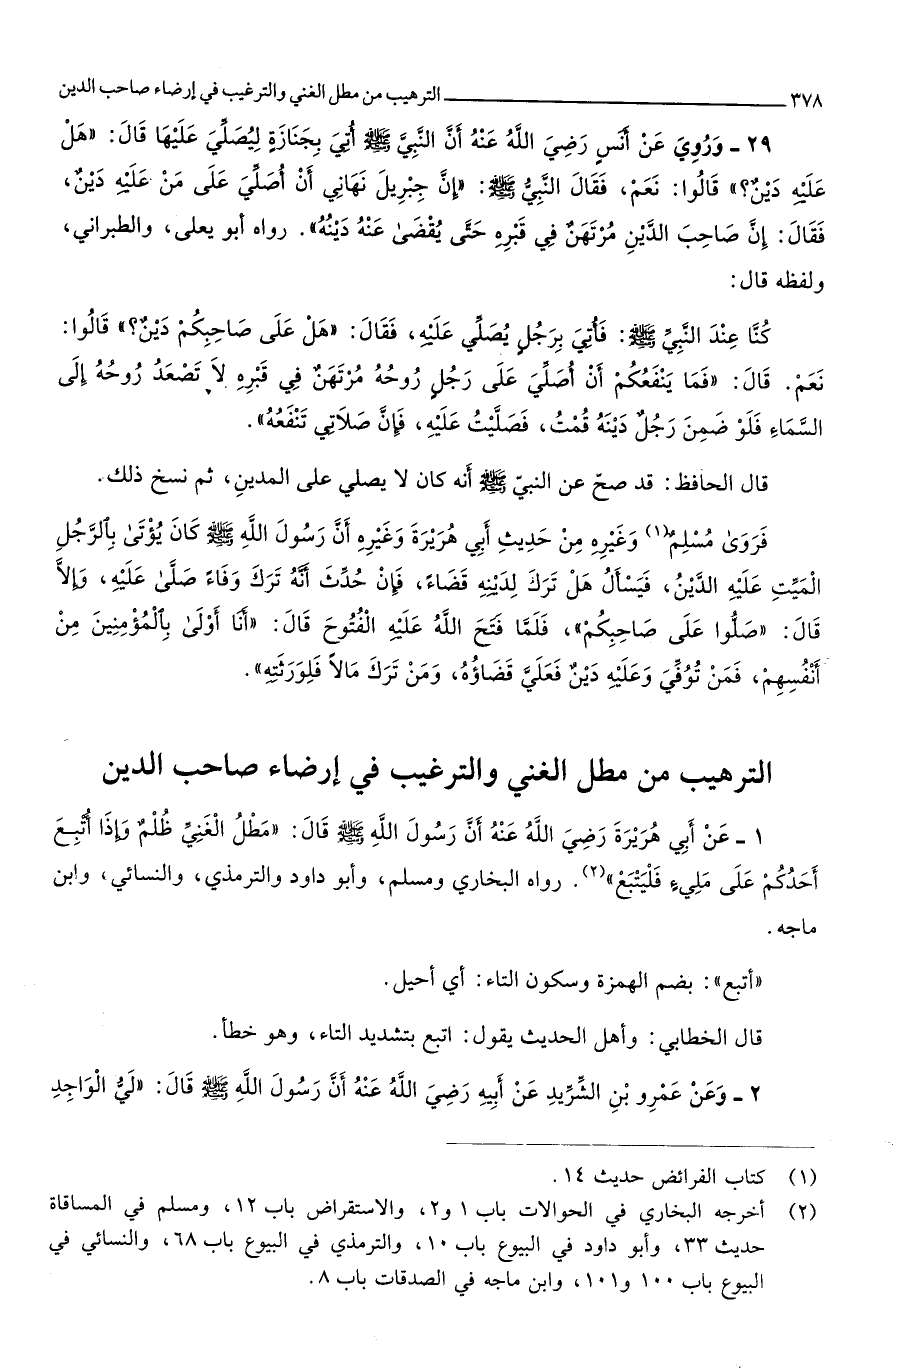 ٣٧٨ ــــــــ الترهيب من مطل الغني والترغيب في إرضاء صاحب الدين
٢٩ ـ وَرُوِيَ عَنْ أَنَسٍ رَضِيَ اللَّهُ عَنْهُ أَنَّ النَّبِيَّ ﷺ أُتِيَ بِجَنَازَةٍ لِيُصَلِّيَ عَلَيْهَا قَالَ: «هَلْ
عَلَيْهِ دَيْنٌ؟» قَالُوا: نَعَمْ، فَقَالَ النَّبِيُّ ﷺ: «إِنَّ جِبْرِيلَ نَهَانِي أَنْ أُصَلِّيَ عَلَى مَنْ عَلَيْهِ دَيْنٌ،
فَقَالَ: إِنَّ صَاحِبَ الدَّيْنِ مُرْتَهَنٌ فِي قَبْرِهِ حَتَّى يُقْضَىٰ عَنْهُ دَيْنُهُ». رواه أبو يعلى، والطبراني،
ولفظه قال:
كُنَّا عِنْدَ النَّبِيِّ ﷺ: فَأُتِيَ بِرَجُلٍ يُصَلِّي عَلَيْهِ، فَقَالَ: «هَلْ عَلَى صَاحِبِكُمْ دَيْنٌ؟» قَالُوا:
نَعَمْ. قَالَ: «فَمَا يَنْفَعُكُمْ أَنْ أُصَلِّيَ عَلَى رَجُلٍ رُوحُهُ مُرْتَهَنٌ فِي قَبْرِهِ لاَ تَصْعَدُ رُوحُهُ إِلَى
السَّمَاءِ فَلَوْ ضَمِنَ رَجُلٌ دَيْنَهُ قُمْتُ، فَصَلَّيْتُ عَلَيْهِ، فَإِنَّ صَلَاتِي تَنْفَعُهُ».
قال الحافظ: قد صحّ عن النبيّ ﷺ أنه كان لا يصلي على المدين، ثم نسخ ذلك.
فَرَوَىٰ مُسْلِمٌ(١) وَغَيْرِهِ مِنْ حَدِيثِ أَبِي هُرَيْرَةَ وَغَيْرِهِ أَنَّ رَسُولَ اللَّهِ ﷺ كَانَ يُؤْتَىٰ بِالرَّجُلِ
الْمَيِّتِ عَلَيْهِ الدَّيْنُ، فَيَسْأَلُ هَلْ تَرَكَ لِدَيْنِهِ قَضَاءً، فَإِنْ حُدِّثَ أَنَّهُ تَرَكَ وَفَاءً صَلَّىٰ عَلَيْهِ، وَإِلاَّ
قَالَ: «صَلُّوا عَلَى صَاحِبِكُمْ»، فَلَمَّا فَتَحَ اللَّهُ عَلَيْهِ الْفُتُوحَ قَالَ: «أَنَا أَوْلَىٰ بِالْمُؤْمِنِينَ مِنْ
أَنْفُسِهِمْ، فَمَنْ تُوُفِّيَ وَعَلَيْهِ دَيْنٌ فَعَلَيَّ قَضَاؤُهُ، وَمَنْ تَرَكَ مَالاً فَلِوَرَثَتِهِ».
الترهيب من مطل الغني والترغيب في إرضاء صاحب الدين
١ ـ عَنْ أَبِي هُرَيْرَةَ رَضِيَ اللَّهُ عَنْهُ أَنَّ رَسُولَ اللَّهِ ﷺ قَالَ: «مَطْلُ الْغَنِيِّ ظُلْمٌ وَإِذَا أُتْبِعَ
أَحَدُكُمْ عَلَى مَلِيءٍ فَلْيَتْبَعْ»(٢). رواه البخاري ومسلم، وأبو داود والترمذي، والنسائي، وابن
ماجه.
«أتبع»: بضم الهمزة وسكون التاء: أي أحيل.
قال الخطابي: وأهل الحديث يقول: اتبع بتشديد التاء، وهو خطأ.
٢ ـ وَعَنْ عَمْرِو بْنِ الشَّرِّيدِ عَنْ أَبِيهِ رَضِيَ اللَّهُ عَنْهُ أَنَّ رَسُولَ اللَّهِ ﷺ قَالَ: «لَيُّ الْوَاجِدِ
(١) كتاب الفرائض حديث ١٤.
(٢) أخرجه البخاري في الحوالات باب ١ و٢، والاستقراض باب ١٢، ومسلم في المساقاة
حديث ٣٣، وأبو داود في البيوع باب ١٠، والترمذي في البيوع باب ٦٨، والنسائي في
البيوع باب ١٠٠ و١٠١، وابن ماجه في الصدقات باب ٨.